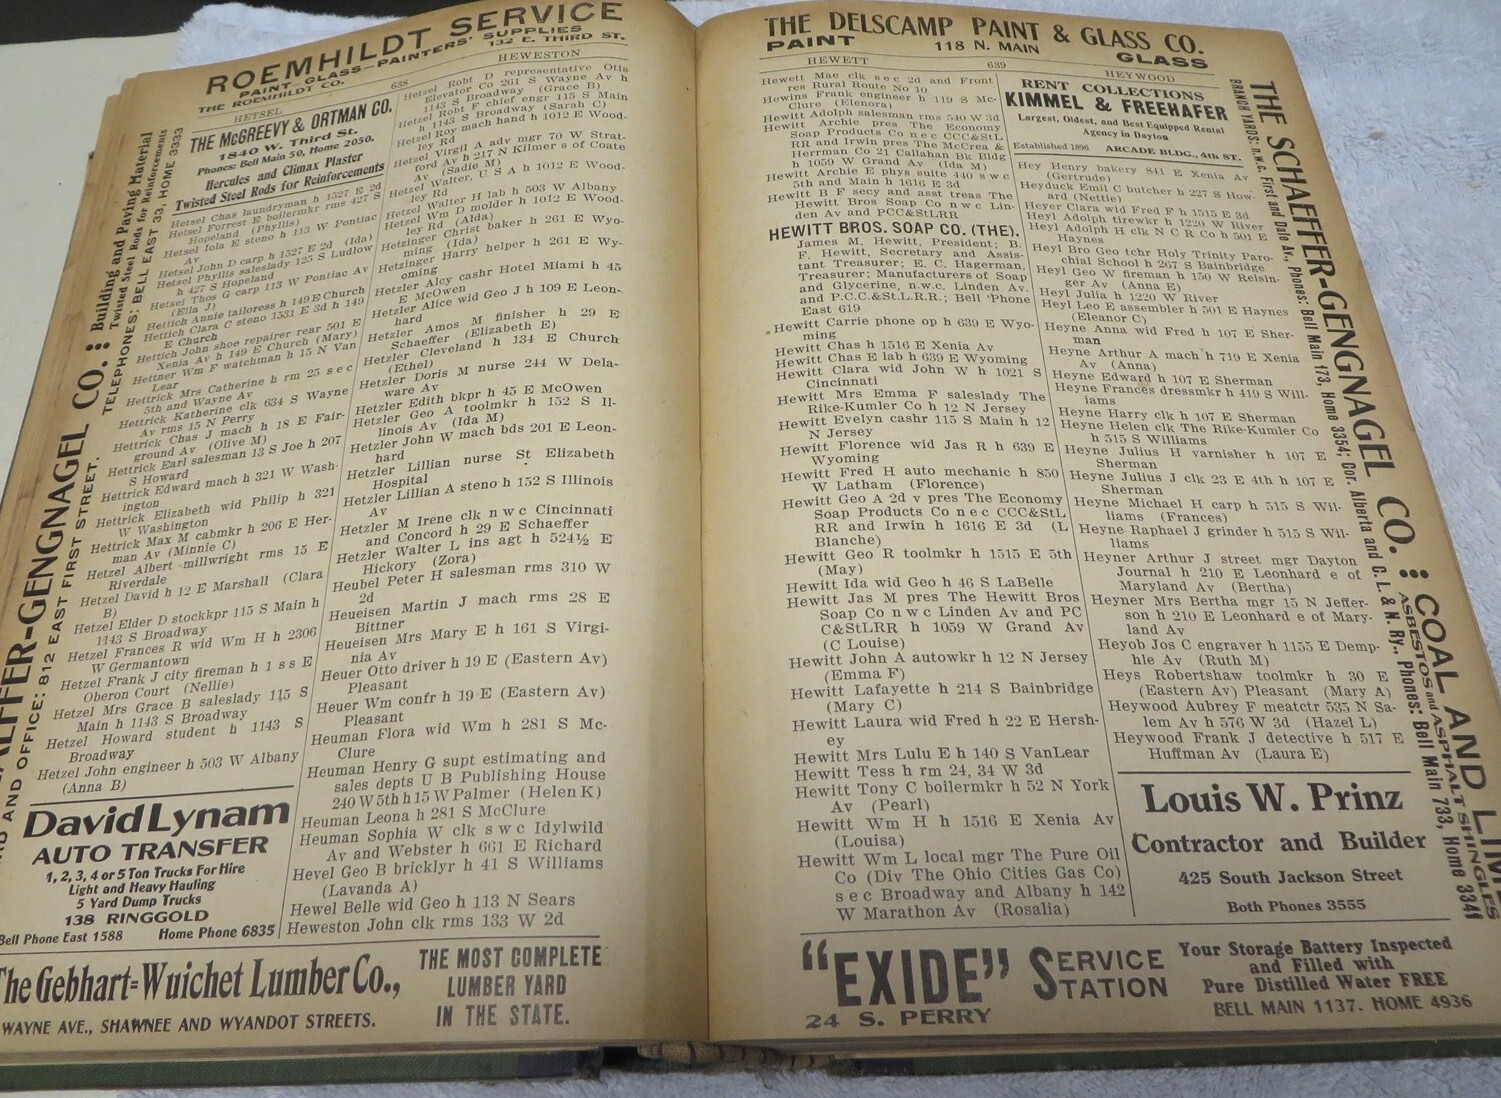 ROEMHILDT SERVICE
PAINT—GLASS—PAINTERS' SUPPLIES
THE ROEMHILDT CO. 132 E. THIRD ST.
HETSEL 638 HEWESTON
Building and Paving Material
Twisted Steel Rods for Reinforcements
TELEPHONES: BELL EAST 33, HOME 3333
AEFFER-GENGNAGEL CO.
AND OFFICE: 812 EAST FIRST STREET.
THE McGREEVY & ORTMAN CO.
1840 W. Third St.
Phones: Bell Main 50, Home 2050.
Hercules and Climax Plaster
Twisted Steel Rods for Reinforcements
Hetsel Chas laundryman h 1527 E 2d
Hetsel Forrest E boilermkr rms 427 S
Hopeland (Phyllis)
Hetsel Iola E steno h 113 W Pontiac
Av
Hetsel John D carp h 1527 E 2d (Ida)
Hetsel Phyllis saleslady 125 S Ludlow
h 427 S Hopeland
Hetsel Thos G carp 113 W Pontiac Av
(Ella J)
Hettich Annie tailoress h 149 E Church
Hettich Clara C steno 1531 E 3d h 149
E Church
Hettich John shoe repairer rear 501 E
Xenia Av h 149 E Church (Mary)
Hettner Wm F watchman h 15 N Van
Lear
Hettrick Mrs Catherine h rm 25 s e c
5th and Wayne Av
Hettrick Katherine clk 634 S Wayne
Av rms 15 N Perry
Hettrick Chas J mach h 18 E Fair-
ground Av (Olive M)
Hettrick Earl salesman 13 S Joe h 207
S Howard
Hettrick Edward mach h 321 W Wash-
ington
Hettrick Elizabeth wid Philip h 321
W Washington
Hettrick Max M cabmkr h 206 E Her-
man Av (Minnie C)
Hetzel Albert millwright rms 15 E
Riverdale
Hetzel David h 12 E Marshall (Clara
B)
Hetzel Elder D stockkpr 115 S Main h
1143 S Broadway
Hetzel Frances R wid Wm H h 2306
W Germantown
Hetzel Frank J city fireman h 1 s s E
Oberon Court (Nellie)
Hetzel Mrs Grace B saleslady 115 S
Main h 1143 S Broadway
Hetzel Howard student h 1143 S
Broadway
Hetzel John engineer h 503 W Albany
(Anna B)
David Lynam
AUTO TRANSFER
1, 2, 3, 4 or 5 Ton Trucks For Hire
Light and Heavy Hauling
5 Yard Dump Trucks
138 RINGGOLD
Bell Phone East 1588 Home Phone 6835
Hetzel Robt D representative Otis
Elevator Co 261 S Wayne Av h
1143 S Broadway (Grace B)
Hetzel Robt F chief engr 115 S Main
h 1143 S Broadway (Sarah C)
Hetzel Roy mach hand h 1012 E Wood-
ley Rd
Hetzel Virgil A adv mgr 70 W Strat-
ford Av h 217 N Kilmer s of Coate
Av (Sadie M)
Hetzel Walter, U S A h 1012 E Wood-
ley Rd
Hetzel Walter H lab h 503 W Albany
Hetzel Wm D molder h 1012 E Wood-
ley Rd (Alda)
Hetzinger Christ baker h 261 E Wyo-
ming (Ida)
Hetzinger Harry helper h 261 E Wy-
oming
Hetzler Alcy cashr Hotel Miami h 45
E McOwen
Hetzler Alice wid Geo J h 109 E Leon-
hard
Hetzler Amos M finisher h 29 E
Schaeffer (Elizabeth E)
Hetzler Cleveland h 134 E Church
(Ethel)
Hetzler Doris M nurse 244 W Dela-
ware Av
Hetzler Edith bkpr h 45 E McOwen
Hetzler Geo A toolmkr h 152 S Il-
linois Av (Ida M)
Hetzler John W mach bds 201 E Leon-
hard
Hetzler Lillian nurse St Elizabeth
Hospital
Hetzler Lillian A steno h 152 S Illinois
Av
Hetzler M Irene clk n w c Cincinnati
and Concord h 29 E Schaeffer
Hetzler Walter L ins agt h 524½ E
Hickory (Zora)
Heubel Peter H salesman rms 310 W
2d
Heueisen Martin J mach rms 28 E
Bittner
Heueisen Mrs Mary E h 161 S Virgi-
nia Av
Heuer Otto driver h 19 E (Eastern Av)
Pleasant
Heuer Wm confr h 19 E (Eastern Av)
Pleasant
Heuman Flora wid Wm h 281 S Mc-
Clure
Heuman Henry G supt estimating and
sales depts U B Publishing House
240 W 5th h 15 W Palmer (Helen K)
Heuman Leona h 281 S McClure
Heuman Sophia W clk s w c Idylwild
Av and Webster h 661 E Richard
Hevel Geo B bricklyr h 41 S Williams
(Lavanda A)
Hewel Belle wid Geo h 113 N Sears
Heweston John clk rms 133 W 2d
The Gebhart-Wuichet Lumber Co.,
WAYNE AVE., SHAWNEE AND WYANDOT STREETS.
THE MOST COMPLETE
LUMBER YARD
IN THE STATE.
THE DELSCAMP PAINT & GLASS CO.
PAINT 118 N. MAIN GLASS
HEWETT 639 HEYWOOD
Hewett Mae clk s e c 2d and Front
res Rural Route No 10
Hewins Frank engineer h 119 S Mc-
Clure (Elenora)
Hewitt Adolph salesman rms 540 W 3d
Hewitt Archie pres The Economy
Soap Products Co n e c CCC&StL
RR and Irwin pres The McCrea &
Herrman Co 21 Callahan Bk Bldg
h 1059 W Grand Av (Ida M)
Hewitt Archie E phys suite 440 s w c
5th and Main h 1616 E 3d
Hewitt B F secy and asst treas The
Hewitt Bros Soap Co n w c Lin-
den Av and PCC&StLRR
HEWITT BROS. SOAP CO. (THE).
James M. Hewitt, President; B.
F. Hewitt, Secretary and Assis-
tant Treasurer; E. C. Hagerman,
Treasurer; Manufacturers of Soap
and Glycerine, n.w.c. Linden Av.
and P.C.C.&St.L.R.R.; Bell 'Phone
East 619
Hewitt Carrie phone op h 639 E Wyo-
ming
Hewitt Chas h 1516 E Xenia Av
Hewitt Chas E lab h 639 E Wyoming
Hewitt Clara wid John W h 1021 S
Cincinnati
Hewitt Mrs Emma F saleslady The
Rike-Kumler Co h 12 N Jersey
Hewitt Evelyn cashr 115 S Main h 12
N Jersey
Hewitt Florence wid Jas R h 639 E
Wyoming
Hewitt Fred H auto mechanic h 850
W Latham (Florence)
Hewitt Geo A 2d v pres The Economy
Soap Products Co n e c CCC&StL
RR and Irwin h 1616 E 3d (L
Blanche)
Hewitt Geo R toolmkr h 1515 E 5th
(May)
Hewitt Ida wid Geo h 46 S LaBelle
Hewitt Jas M pres The Hewitt Bros
Soap Co n w c Linden Av and PC
C&StLRR h 1059 W Grand Av
(C Louise)
Hewitt John A autowkr h 12 N Jersey
(Emma F)
Hewitt Lafayette h 214 S Bainbridge
(Mary C)
Hewitt Laura wid Fred h 22 E Hersh-
ey
Hewitt Mrs Lulu E h 140 S VanLear
Hewitt Tess h rm 24, 34 W 3d
Hewitt Tony C boilermkr h 52 N York
Av (Pearl)
Hewitt Wm H h 1516 E Xenia Av
(Louisa)
Hewitt Wm L local mgr The Pure Oil
Co (Div The Ohio Cities Gas Co)
s e c Broadway and Albany h 142
W Marathon Av (Rosalia)
RENT COLLECTIONS
KIMMEL & FREEHAFER
Largest, Oldest, and Best Equipped Rental
Agency in Dayton
Established 1896 ARCADE BLDG., 4th ST.
Hey Henry bakery 841 E Xenia Av
(Gertrude)
Heyduck Emil C butcher h 227 S How-
ard (Nettle)
Heyer Clara wid Fred F h 1515 E 3d
Heyl Adolph tirewkr h 1220 W River
Heyl Adolph H clk N C R Co h 501 E
Haynes
Heyl Bro Geo tchr Holy Trinity Paro-
chial School h 267 S Bainbridge
Heyl Geo W fireman h 150 W Reisin-
ger Av (Anna E)
Heyl Julia h 1220 W River
Heyl Leo E assembler h 501 E Haynes
(Eleanor C)
Heyne Anna wid Fred h 107 E Sher-
man
Heyne Arthur A mach h 719 E Xenia
Av (Anna)
Heyne Edward h 107 E Sherman
Heyne Frances dressmkr h 419 S Will-
iams
Heyne Harry clk h 107 E Sherman
Heyne Helen clk The Rike-Kumler Co
h 515 S Williams
Heyne Julius H varnisher h 107 E
Sherman
Heyne Julius J clk 23 E 4th h 107 E
Sherman
Heyne Michael H carp h 515 S Wil-
liams (Frances)
Heyne Raphael J grinder h 515 S Wil-
liams
Heyner Arthur J street mgr Dayton
Journal h 210 E Leonhard e of
Maryland Av (Bertha)
Heyner Mrs Bertha mgr 15 N Jeffer-
son h 210 E Leonhard e of Mary-
land Av
Heyob Jos C engraver h 1155 E Demp-
hle Av (Ruth M)
Heys Robertshaw toolmkr h 30 E
(Eastern Av) Pleasant (Mary A)
Heywood Aubrey F meatctr 535 N Sa-
lem Av h 576 W 3d (Hazel L)
Heywood Frank J detective h 517 E
Huffman Av (Laura E)
Louis W. Prinz
Contractor and Builder
425 South Jackson Street
Both Phones 3555
THE SCHAEFFER-GENGNAGEL CO. : COAL AND LIME
BRANCH YARDS: n.w.c. First and Dale Av., Phones: Bell Main 173, Home 3354; Cor. Alberta and C. L. & N. Ry., Phones: Bell Main 733, Home 3341
ASBESTOS and ASPHALT SHINGLES
"EXIDE" SERVICE STATION
24 S. PERRY
Your Storage Battery Inspected
and Filled with
Pure Distilled Water FREE
BELL MAIN 1137. HOME 4936